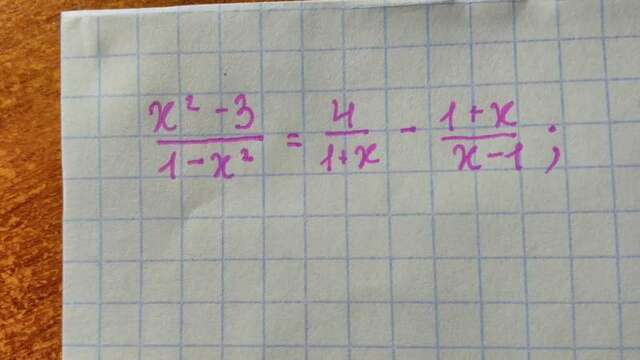 \frac{x^2-3}{1-x^2} = \frac{4}{1+x} - \frac{1+x}{x-1};